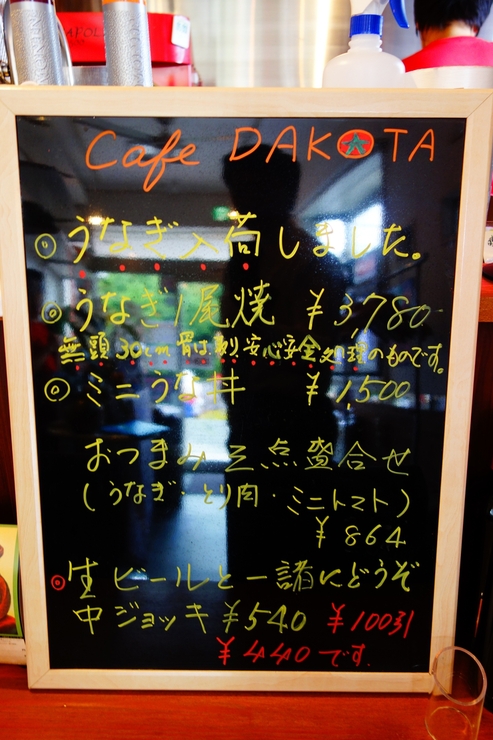 Cafe DAKOTA
◎うなぎ入荷しました。
◎うなぎ1尾焼 ¥3,780-
無頭30cm 骨は剰り 安心安全処理のものです。
◎ミニうな丼 ¥1,500
おつまみ三点盛合せ
(うなぎ・とり肉・ミニトマト)
¥864
◎生ビールと一諸にどうぞ
中ジョッキ¥540 ¥100引
¥440です.